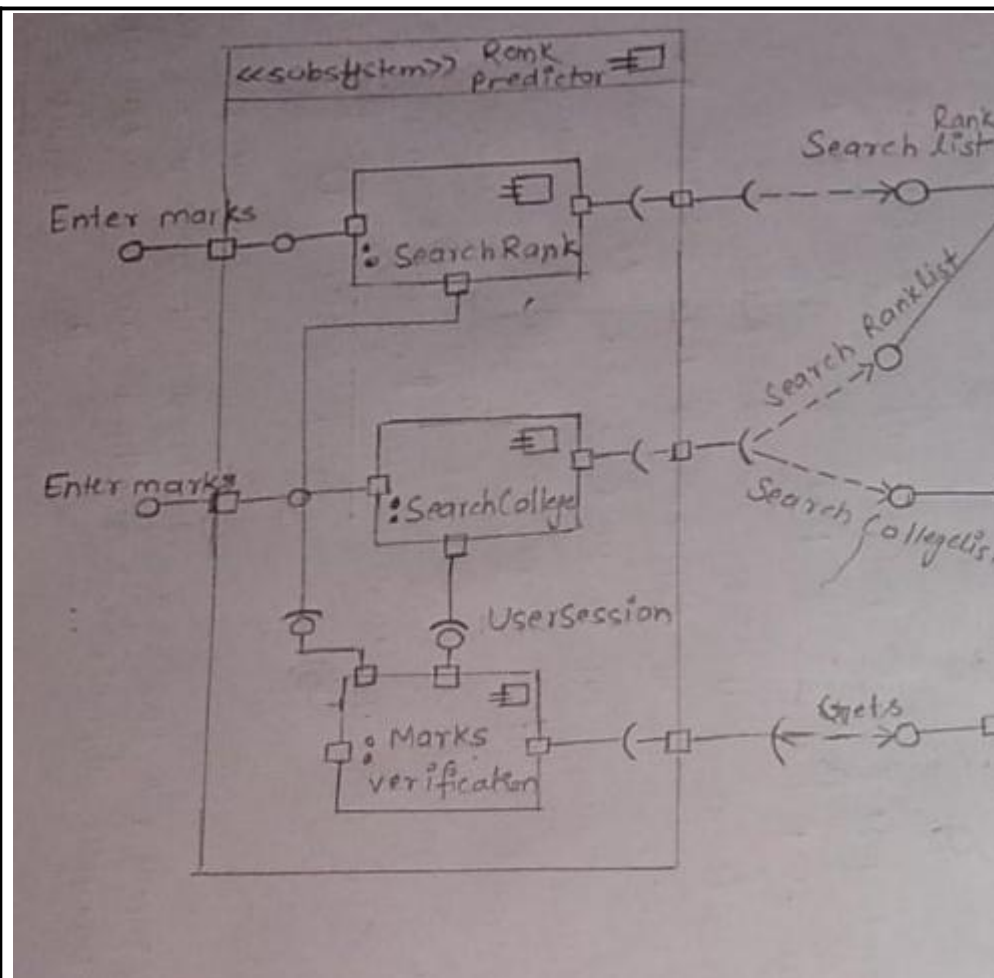 <<subsystem>> Rank
Predictor
Rank
Search list
Enter marks
: SearchRank
Search Ranklist
Enter marks
: SearchCollege
Search Collegelis
UserSession
: Marks
verification
Gets